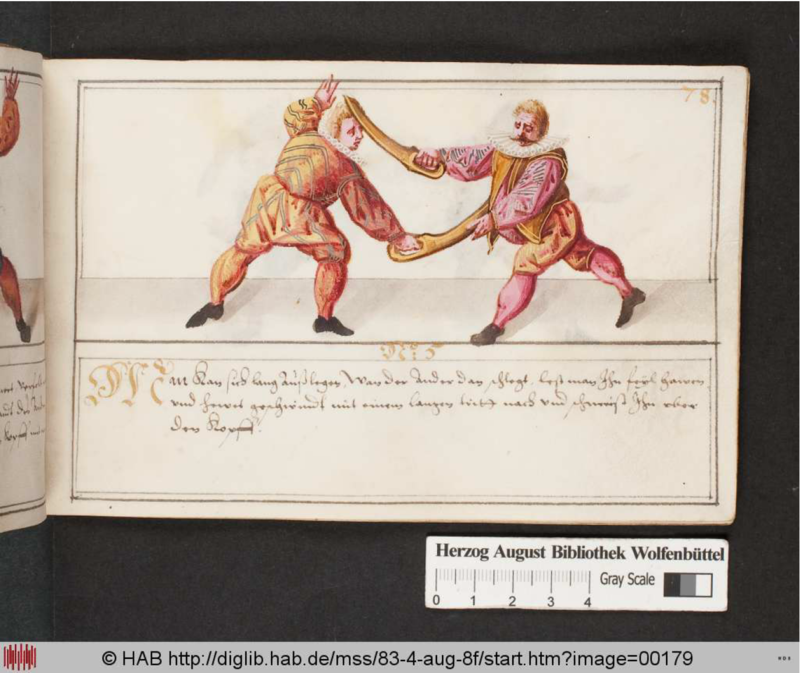 78.
N: 5
Man Kan sich lang außlegen, Wan der Ander dan schlegt, lest man Ihn fehl hawen
und hawet geschwindt mit einem langen tritt nach und schmeist Ihn uber
den Kopff.
Herzog August Bibliothek Wolfenbüttel
Gray Scale
0 1 2 3 4
© HAB http://diglib.hab.de/mss/83-4-aug-8f/start.htm?image=00179